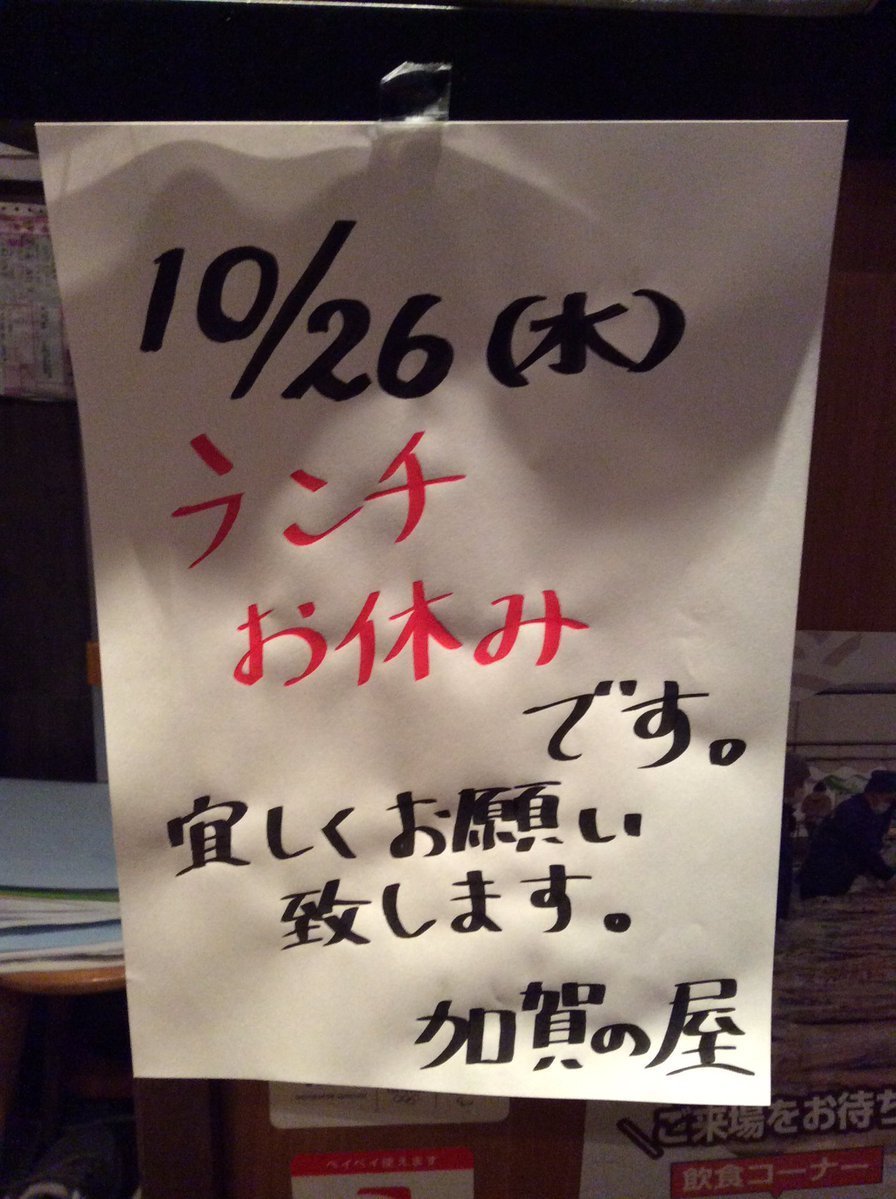 10/26(水)
ランチ
お休み
です。
宜しくお願い
致します。
加賀の屋
ご来場をお待ち
飲食コーナー
ペイペイ使えます